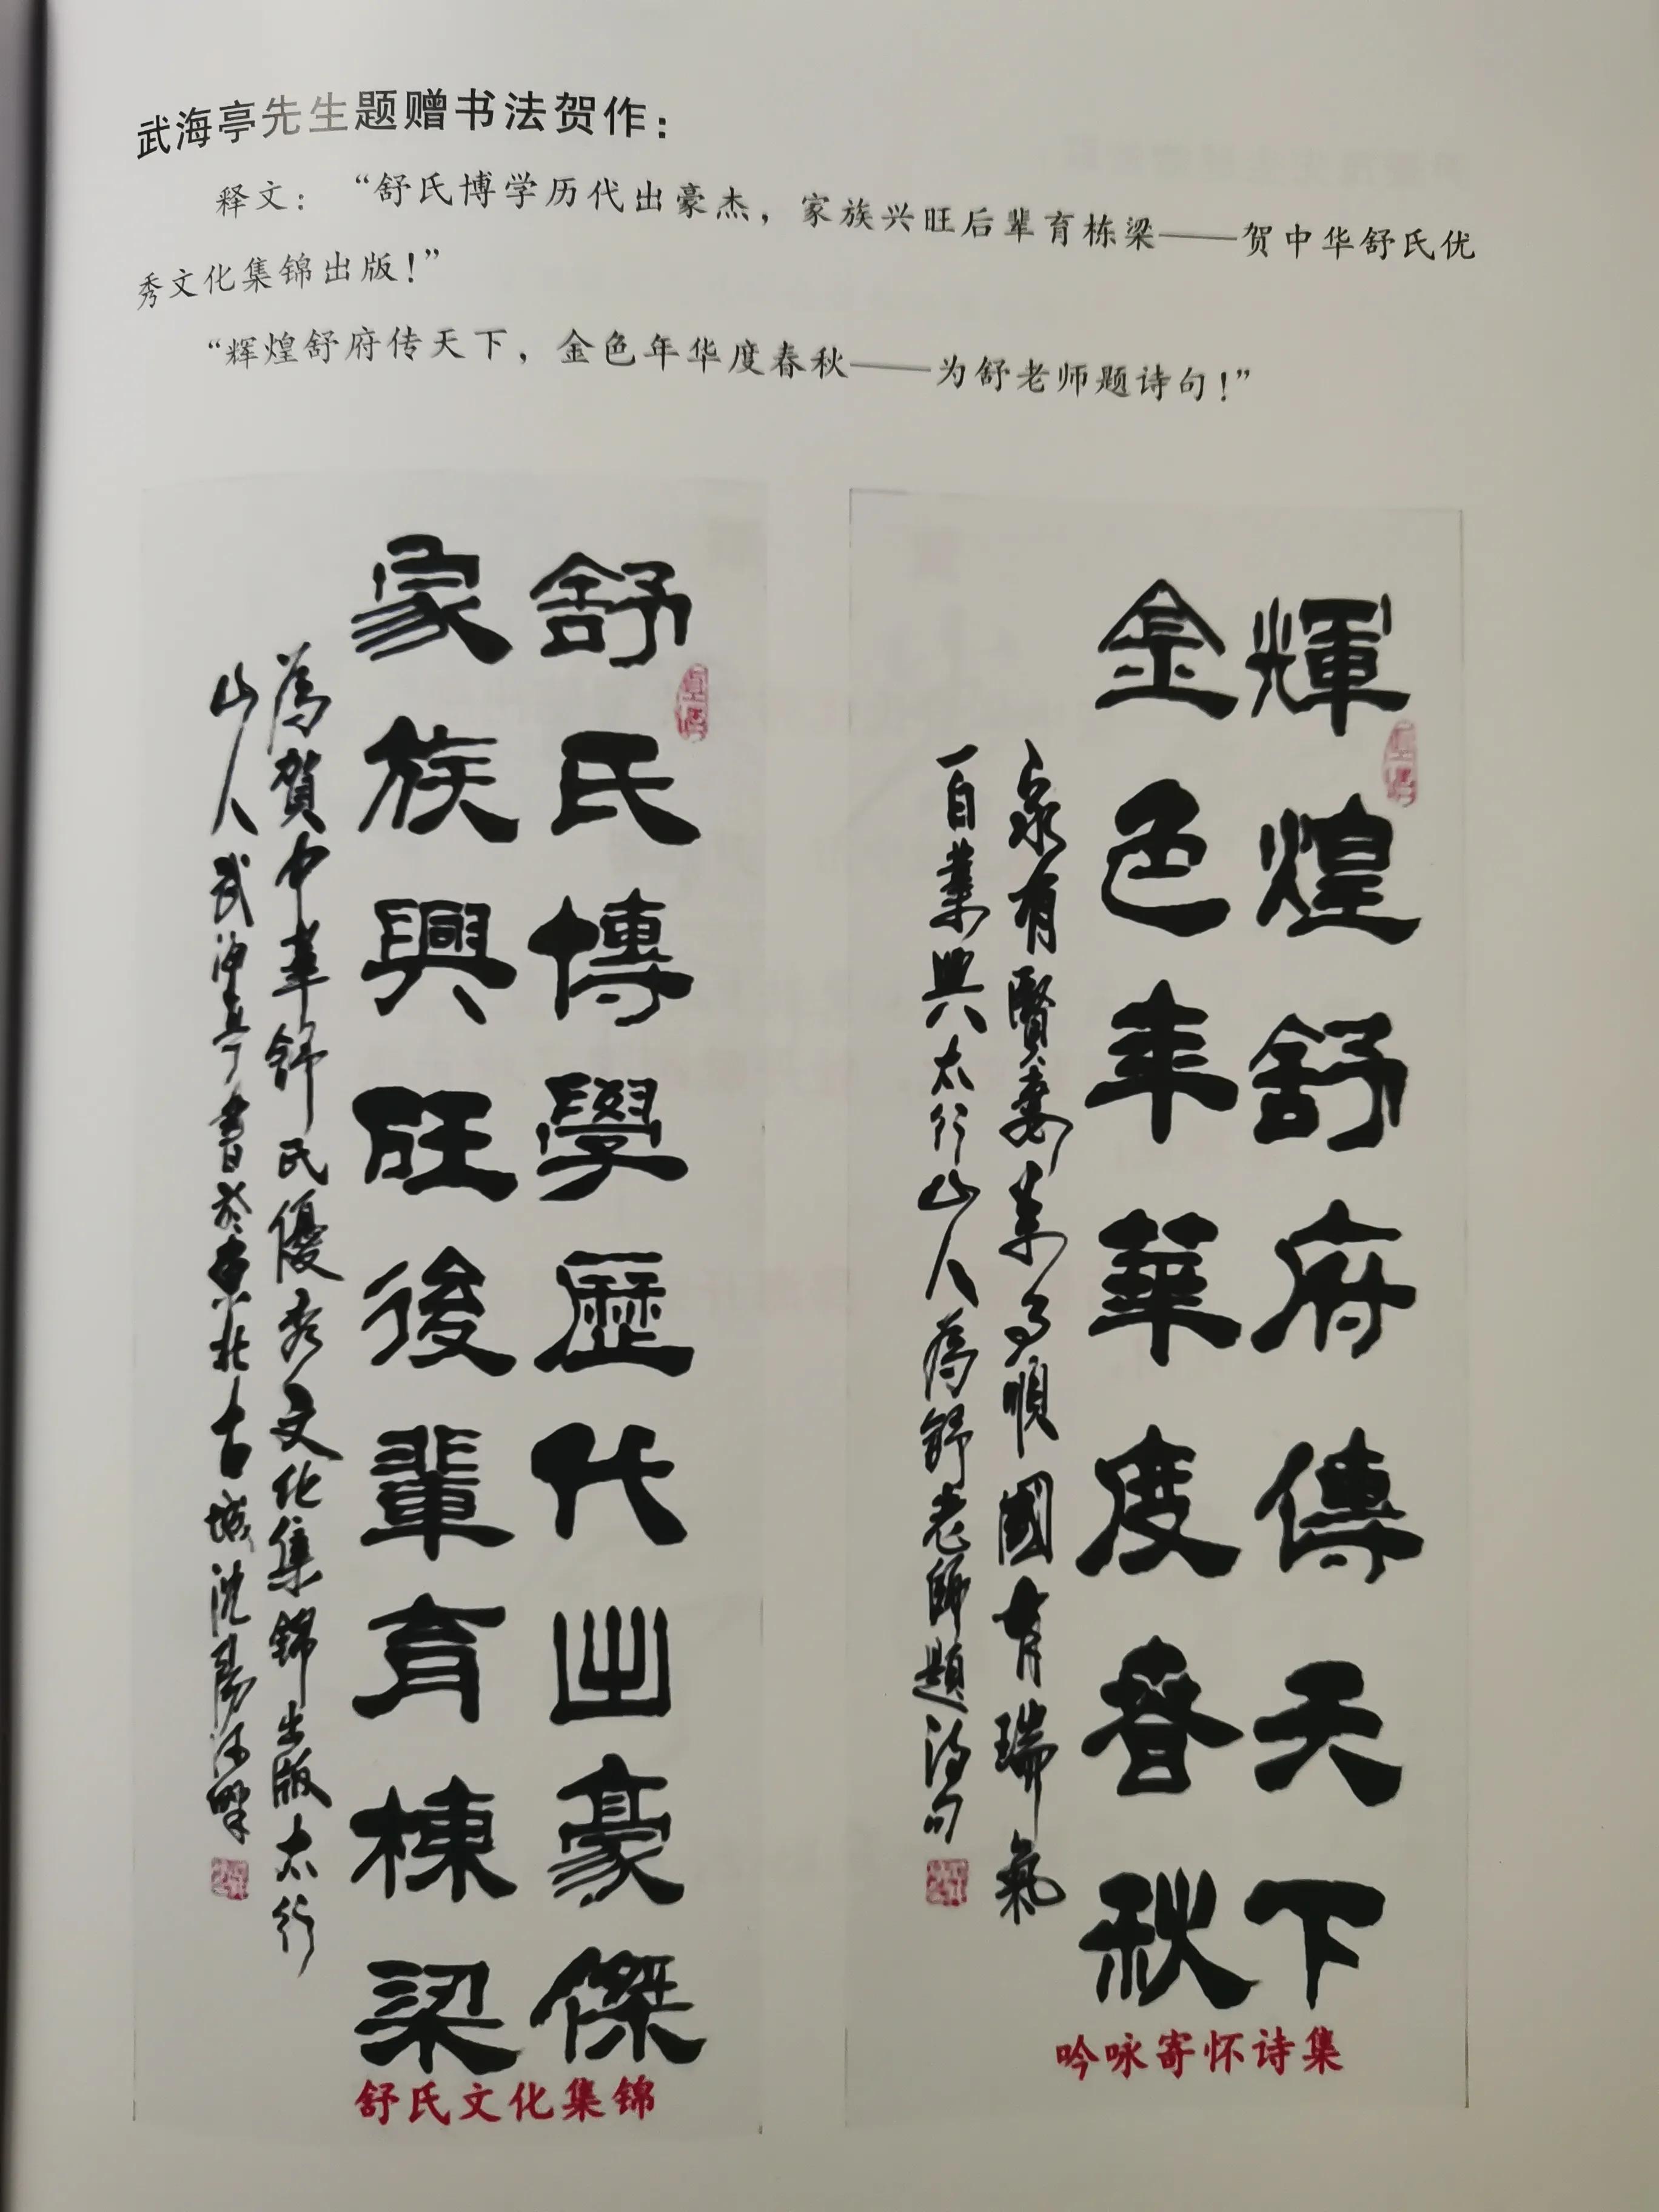 武海亭先生题赠书法贺作：
释文：“舒氏博学历代出豪杰，家族兴旺后辈育栋梁——贺中华舒氏优
秀文化集锦出版！”
“辉煌舒府传天下，金色年华度春秋——为舒老师题诗句！”
舒氏博學歷代出豪傑
家族興旺後輩育棟梁
為賀中華舒氏優秀文化集錦出版太行
山人武海亭書於東北古城沈陽河畔
舒氏文化集锦
輝煌舒府傳天下
金色年華度春秋
家有賢妻萬事順國有瑞氣
百業興太行山人為舒老師題詩句
吟咏寄怀诗集